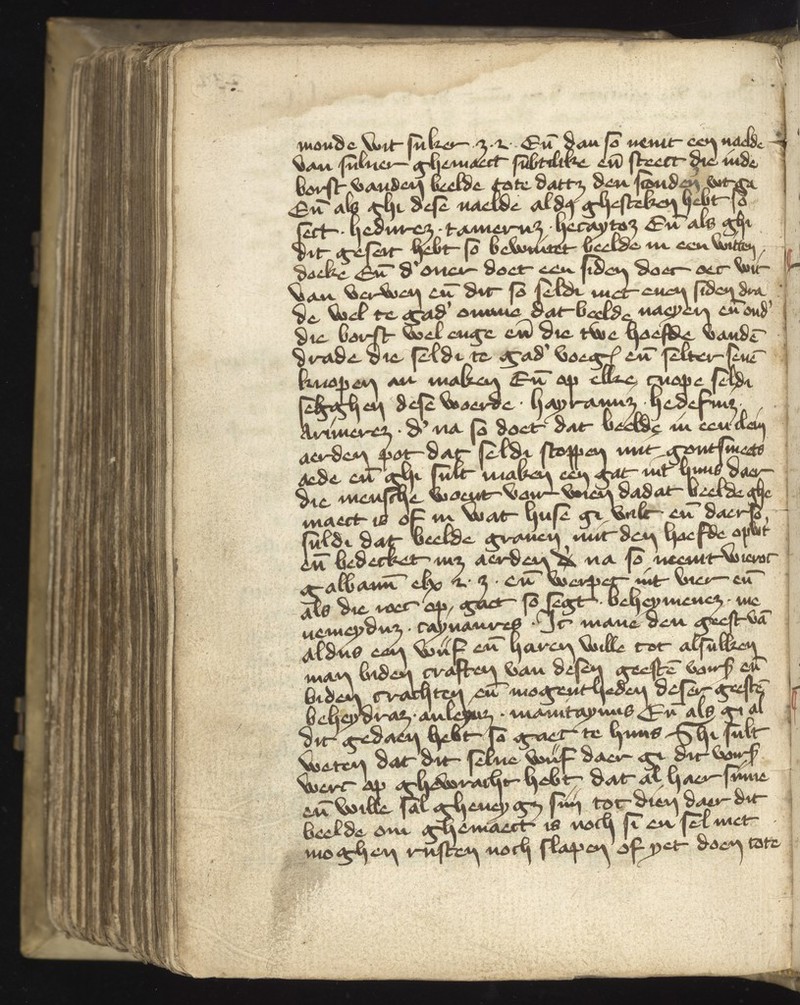 monde wit suker .z.2. En̄ dan so nemt een naelde
van suluer ghemaect subtilike en̄ steect die inde
borst vanden beelde tote dattz den sconden wt ga
En̄ als ghi dese naelde aldꝰ ghesteken hebt so
sect . hedurez . tameruz . hecaytoz En̄ als ghi
dit geseit hebt so bewintet beelde in een witten
doeke En̄ d' ouer doet een siden doec oec wit
van verwen en̄ dit so seldi met enen siden dra
de wel te gad' omme dat beelde naeyen en̄ ond'
die borst wel enge en̄ die twe hoefde vandē
drade die seldi te gad' voegē en̄ selter seuē
knopen an maken En̄ op elke cnope seldi
segghen dese woerde . hayranuz . hedefiuz .
arimerez . d' na so doet dat beelde in een clein
aerden pot dat seldi stoppen mit goutsmets
aede en̄ ghi sult maken een gat int huus daer
die mensche woent van wien dadat beelde ghe
maect is of in wat huse gi wilt en̄ daer so
suldi dat beelde grauen mit den hoefde opwt
en̄ bedecket mz aerden d' na so neemt wieroc
galbanū elx 2.z. en̄ werpet int vier en̄
als die roec op gaet so segt . beheymenez . me
nemeyduz . caynaures . Ic mane den geest vā
aldus een wijf en̄ haren wille tot alsulken
man biden craften van desen geestē vors en̄
biden crachten en̄ mogentheden deser geestē
beheydraz . anleyuz . manitaynus En̄ als gi al
dit gedaen hebt so gaet te huus Ghi sult
weten dat dit selue wijf daer gi dit vors
werc op ghewracht hebt dat al haer sinne
en̄ wille sal gheneygt sijn tot dien daer dit
beelde om ghemaect is noch si en sel niet
moghen rusten noch slapen of yet doen tote